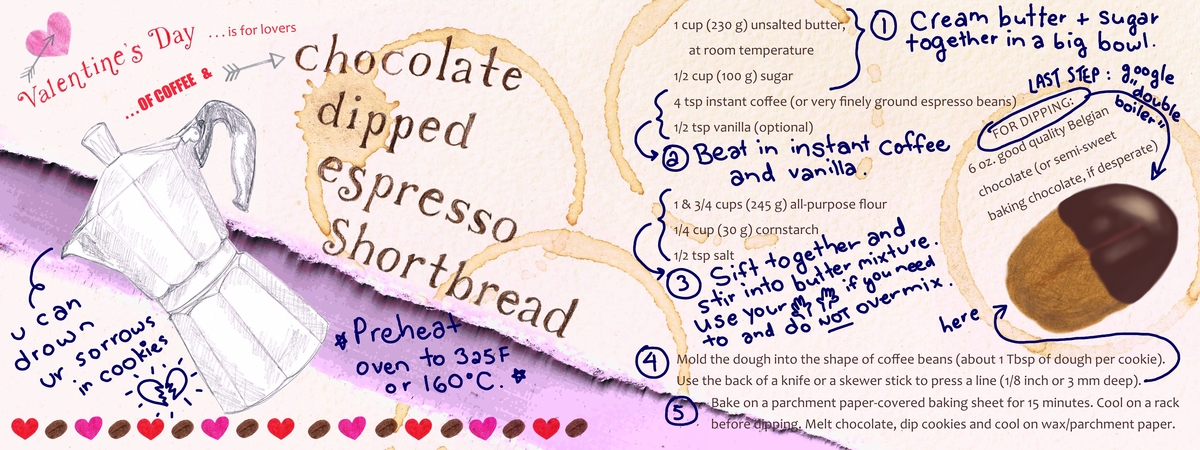 Valentine's Day ...is for lovers
...OF COFFEE &
chocolate
dipped
espresso
shortbread
u can
drown
ur sorrows
in cookies
*Preheat
oven to 325F
or 160°C. *
1 cup (230 g) unsalted butter,
at room temperature
1/2 cup (100 g) sugar
1 Cream butter + sugar
together in a big bowl.
4 tsp instant coffee (or very finely ground espresso beans)
1/2 tsp vanilla (optional)
2 Beat in instant coffee
and vanilla.
1 & 3/4 cups (245 g) all-purpose flour
1/4 cup (30 g) cornstarch
1/2 tsp salt
3 Sift together and
stir into butter mixture.
Use your if you need
to and do NOT overmix.
LAST STEP: google
"double
boiler"
FOR DIPPING:
6 oz. good quality Belgian
chocolate (or semi-sweet
baking chocolate, if desperate)
here
4 Mold the dough into the shape of coffee beans (about 1 Tbsp of dough per cookie).
Use the back of a knife or a skewer stick to press a line (1/8 inch or 3 mm deep).
5 Bake on a parchment paper-covered baking sheet for 15 minutes. Cool on a rack
before dipping. Melt chocolate, dip cookies and cool on wax/parchment paper.